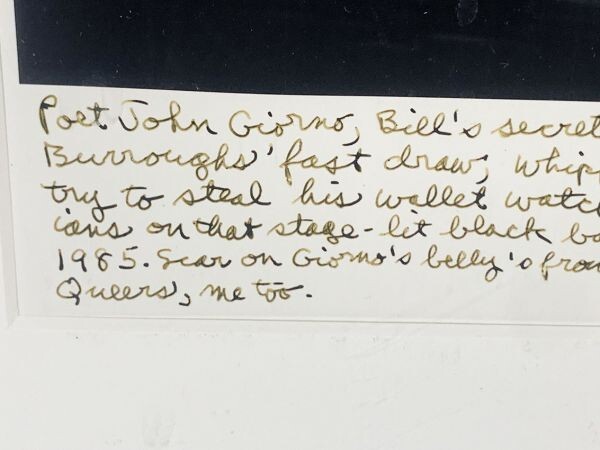 Poet John Giorno, Bill's secret
Burroughs' fast draw, whip
try to steal his wallet watc
ians on that stage-lit black ba
1985. Scar on Giorno's belly's from
Queers, me too.